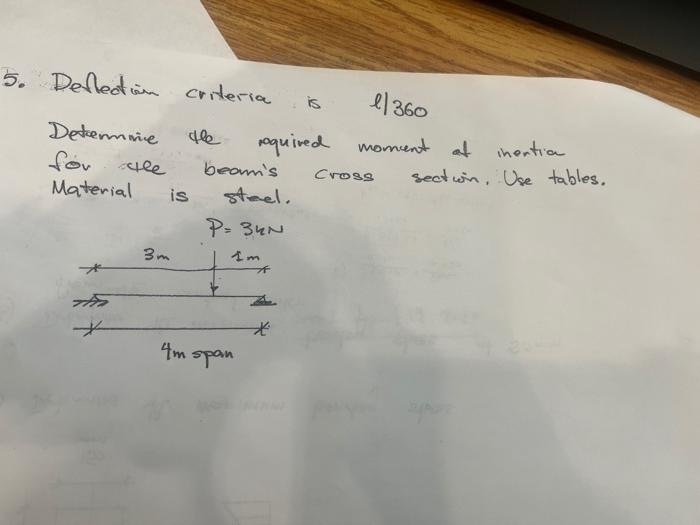 5. Deflection criteria is l/360
Determine the required moment of inertia
for the beam's cross section. Use tables.
Material is steel.
P= 3kN
3m 1m
4m span